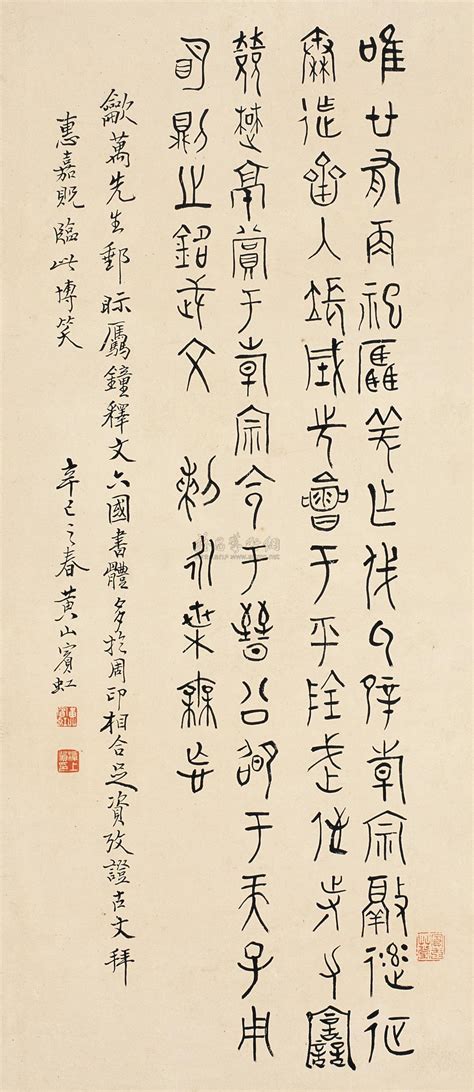 唯廿又再祀驫羌乍戎氒辟韓宗敲䢦征
秦迮齊入張城先會于平陰武侄寺力譶
敓楚京賞于韓宗令于晉公卲于天子用
明則之銘武文剌永枼無忘
萬先生郵眎驫鐘釋文六國書體多於周印相合足資攷證古文拜
惠嘉貺臨此博笑 辛巳之春黃山賓虹